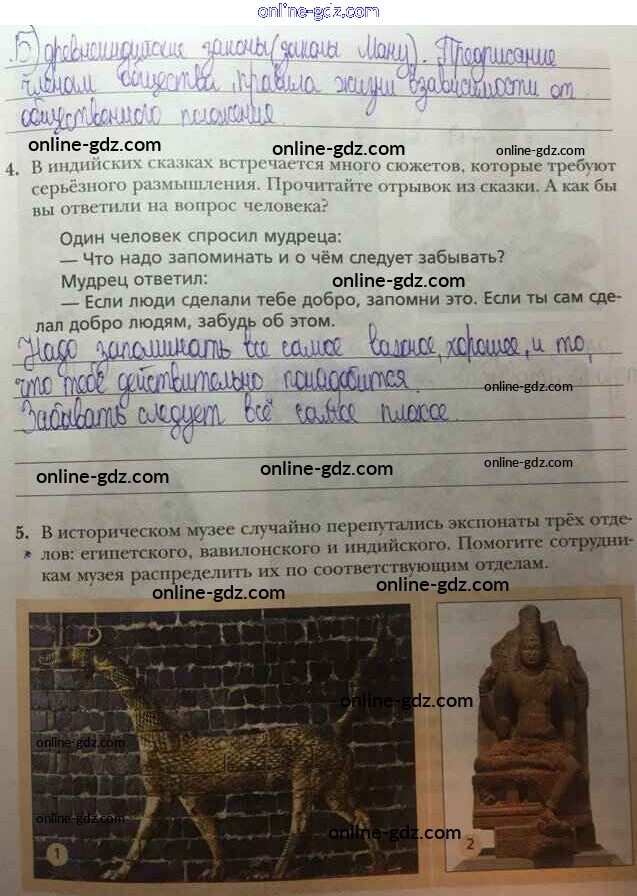 online-gdz.com
Б) древнеиндийские законы (законы Ману). Предписание
членам общества, правила жизни взависимости от
общественного положения.
online-gdz.com online-gdz.com online-gdz.com
4. В индийских сказках встречается много сюжетов, которые требуют
серьёзного размышления. Прочитайте отрывок из сказки. А как бы
вы ответили на вопрос человека?
Один человек спросил мудреца:
— Что надо запоминать и о чём следует забывать?
Мудрец ответил: online-gdz.com
— Если люди сделали тебе добро, запомни это. Если ты сам сде-
лал добро людям, забудь об этом.
Надо запоминать все самое важное, хорошее, и то,
что тебе действительно понадобится.
online-gdz.com
Забывать следует всё самое плохое.
online-gdz.com online-gdz.com online-gdz.com
5. В историческом музее случайно перепутались экспонаты трёх отде-
* лов: египетского, вавилонского и индийского. Помогите сотрудни-
кам музея распределить их по соответствующим отделам.
online-gdz.com online-gdz.com
online-gdz.com
online-gdz.com online-gdz.com
online-gdz.com
online-gdz.com
1 2